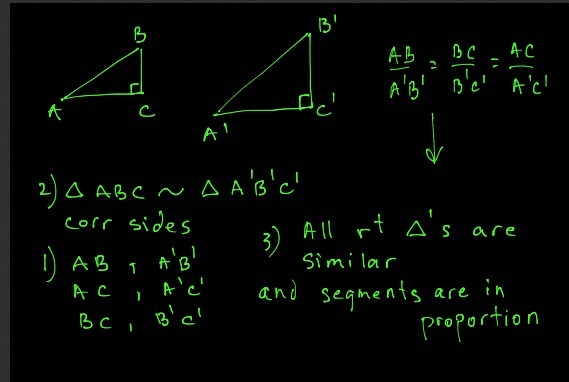 B
A
C
B'
A'
C'
AB/A'B' = BC/B'C' = AC/A'C'
2) Δ ABC ~ Δ A'B'C'
corr sides
1) AB , A'B'
AC , A'C'
BC , B'C'
3) All rt Δ's are
similar
and segments are in
proportion